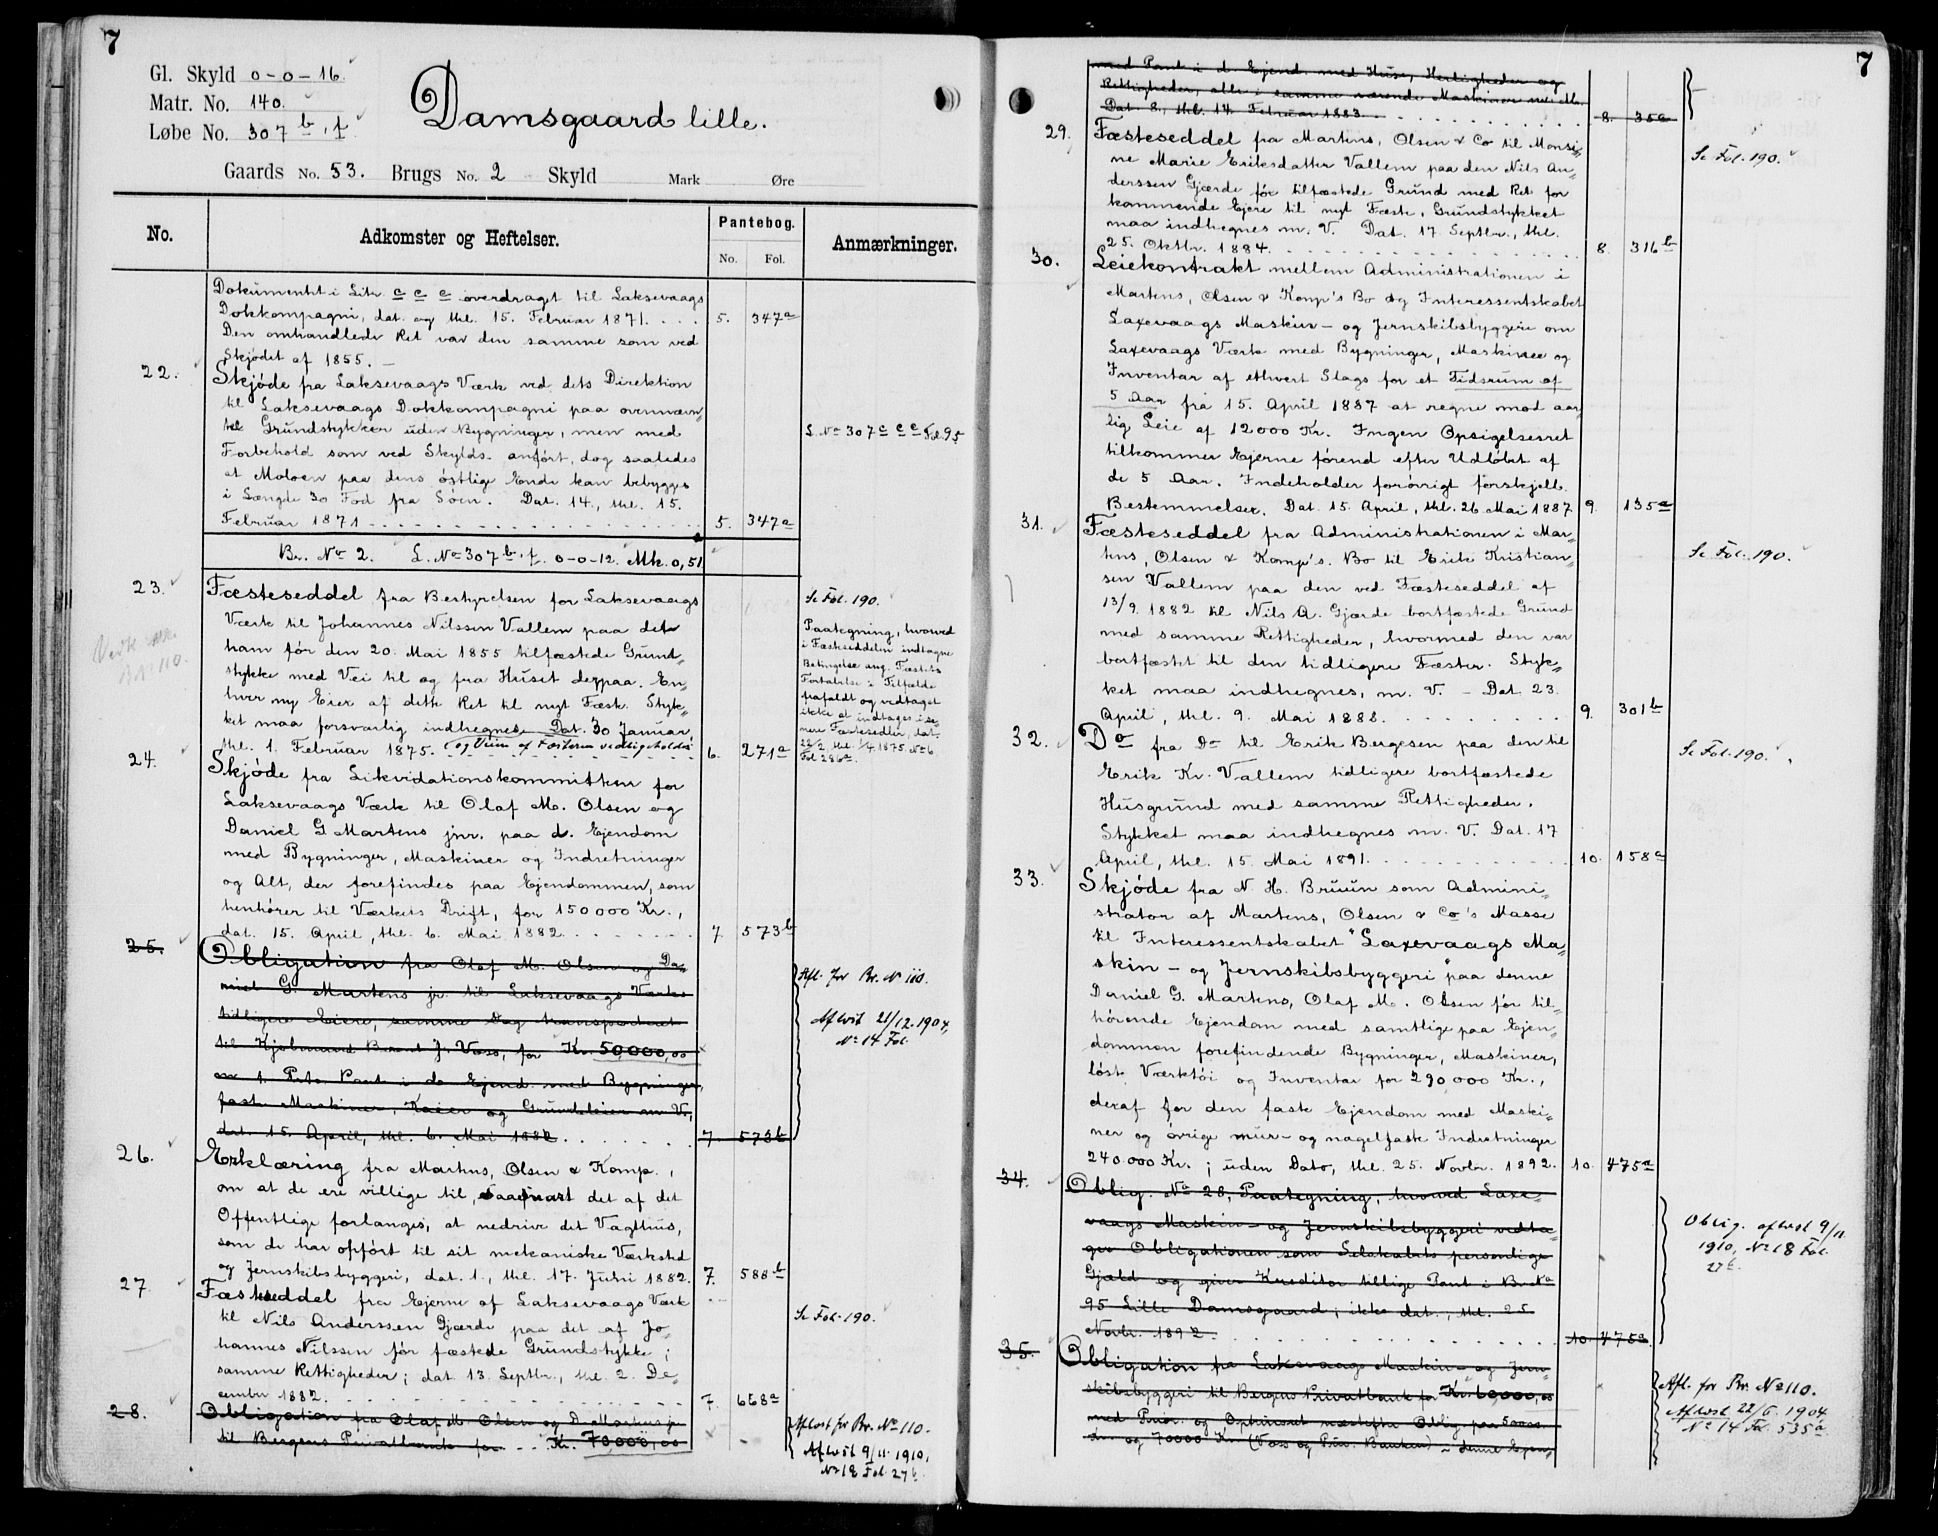 7
Gl. Skyld 0-0-16
Matr. No. 140.
Løbe No. 307 b, f
Damsgaard lille.
Gaards No. 53. Brugs No. 2 Skyld Mark Øre
No. Adkomster og Heftelser. Pantebog. Anmærkninger.
No. Fol.
Dokumentet i Litr c c c overdraget til Laksevaags
Dokkompagni, dat. og thl. 15. Februar 1871. . . . 5. 347a
Den omhandlede Ret var den samme som ved
Skjødet af 1855. –
22. Skjøde fra Laksevaags Værk ved dets Direktion
til Laksevaags Dokkompagni paa ovennævn-
te Grundstykker uden Bygninger, men med L. No 307 c c c Fol. 95
Forbehold som ved Skylds. anført, dog saaledes
at Moloen paa dens østlige Ende kan bebygges
i Længde 30 Fod fra Søen. Dat. 14., thl. 15.
Februar 1871 5. 347a
Br. No 2. L. No 307 b, f. 0-0-12. Mk. 0,51
23. Fæsteseddel fra Bestyrelsen for Laksevaags
Værk til Johannes Nilssen Vallem paa det
ham før den 20. Mai 1855 tilfæstede Grund-
stykke med Vei til og fra Huset derpaa. En-
hver ny Eier af dette Ret til nyt Fæste. Styk-
ket maa forsvarlig indhegnes. Dat. 30 Januar,
thl. 1. Februar 1875. (og Veien af Fæsteren vedligeholdes 6. 271a
Se Fol. 190.
Paategning, hvorved
i Fæsteseddelen indtagne
Betingelse ang. Fæstets
Fortabelse i Tilfælde
frafaldt og vedtaget
ikke at indtages i se-
nere Fæstesedler, dat.
22/2, thl. 1/4 1875 No 6
Fol 286a.
24. Skjøde fra Likvidationskommitteen for
Laksevaags Værk til Olaf M. Olsen og
Daniel G Martens jnr. paa d. Ejendom
med Bygninger, Maskiner og Indretninger
og Alt, der forefindes paa Ejendommen, som
henhører til Værkets Drift, for 150000 Kr.,
dat. 15. April, thl. 6. Mai 1882 7. 573b
25. Obligation fra Olaf M. Olsen og Da-
niel G. Martens jr. til Laksevaags Værks
tidligere Eiere, samme Dag transporteret
til Kjøbmand Berent J. Vaso, for Kr. 50,000,00
m 1. Prts Pant i do Ejend. med Bygninger,
faste Maskiner, Kaier og Grundeleien m. V.,
dat. 15. April, thl. 6. Mai 1882 7. 573b
Afl. for Br. No 110.
Aflöst 21/12. 1904,
No 14 Fol.
26. Erklæring fra Martens, Olsen & Komp.,
om at de ere villige til, saasnart det af det
Offentlige forlanges, at nedrive det Vagthus,
som de har opført til sit mekaniske Værksted
og Jernskibsbyggeri, dat. 1., thl. 17. Juni 1882. 7. 588b
27. Fæsteseddel fra Ejerne af Laksevaags Værk
til Nils Anderssen Gjærde paa det af Jo-
hannes Nilssen før fæstede Grundstykke;
samme Rettigheder; dat. 13. Septbr., thl. 2. De-
cember 1882. 7. 668a
Se Fol. 190.
28. Obligation fra Olaf M. Olsen og D. Martens jr.
til Bergens Privatbank for Kr. 70000,00
Afløst for Br. No 110.
Afløst 9/11. 1910,
No 18 Fol. 27b.
7
med Pant i d. Ejend. med Huse, Herligheder og
Rettigheder, alle i samme værende Maskiner m. M.
Dat. 8., thl. 14. Februar 1883. 8. 35a
29. Fæsteseddel fra Martens, Olsen & Co til Monsi-
ne Marie Eriksdatter Vallem paa den Nils An-
derssen Gjærde før tilfæstede Grund med Ret for
kommende Ejere til nyt Fæste. Grundstykket
maa indhegnes m. V. Dat. 17. Septbr., thl.
25. Oktbr. 1884. 8. 316b
Se Fol. 190.
30. Leiekontrakt mellem Administrationen i
Martens, Olsen & Komp's Bo og Interessentskabet
Laxevaags Maskin- og Jernskibsbyggeri om
Laxevaags Værk med Bygninger, Maskiner og
Inventar af ethvert Slags for et Tidsrum af
5 Aar fra 15. April 1887 at regne mod aar-
lig Leie af 12000 Kr. Ingen Opsigelsesret
tilkommer Ejerne førend efter Udløbet af
de 5 Aar. Indeholder forøvrigt forskjell.
Bestemmelser. Dat. 15. April, thl. 26 Mai 1887 9. 135a
31. Fæsteseddel fra Administrationen i Mar-
tens, Olsen & Komp's. Bo til Erik Kristian-
sen Vallem paa den ved Fæsteseddel af
13/9. 1882 til Nils A. Gjærde bortfæstede Grund
med samme Rettigheder, hvormed den var
bortfæstet til den tidligere Fæster. Styk-
ket maa indhegnes, m. V. – Dat. 23.
April, thl. 9. Mai 1888. 9. 301b
Se Fol. 190.
32. Do fra Do til Erik Bergesen paa den til
Erik Kr. Vallem tidligere bortfæstede
Husgrund med samme Rettigheder.
Stykket maa indhegnes m. V. Dat. 17
April, thl. 15. Mai 1891. 10. 158a
Se Fol. 190.
33. Skjøde fra N. H. Bruun som Admini-
strator af Martens, Olsen & Co's Masse
til Interessentskabet "Laxevaags Ma-
skin- og Jernskibsbyggeri" paa denne
Daniel G. Martens, Olaf M. Olsen før til-
hørende Ejendom med samtlige paa Ejen-
dommen forefindende Bygninger, Maskiner,
løst Værktøi og Inventar for 290000 Kr.,
deraf for den faste Ejendom med Maski-
ner og øvrige mur- og nagelfaste Indretninger
240.000 Kr.; uden Dato, thl. 25. Novbr. 1892. 10. 475a
34. Oblig. No 28, Paategning, hvorved Laxe-
vaags Maskin- og Jernskibsbyggeri vedta-
ger Obligationen som Selskabets personlige
Gjæld og giver Kreditor tillige Pant i B. No
95 Lille Damsgaard; ikke dat., thl. 25
Novbr. 1892. 10. 475a.
Oblig. aflæst 9/11.
1910, No 18 Fol.
27b.
35. Obligation fra Laksevaags Maskin- og Jern-
skibsbyggeri til Bergens Privatbank for Kr. 60000,00
med Prior. og Opkrævet næstefter Oblig. paa 50000
Kr. og 70000 Kr. (Vaso og Priv. Banken) i denne Ejen-
Afl. for Br. No 110.
Aflöst 22/6. 1904.
No 14 Fol. 535a